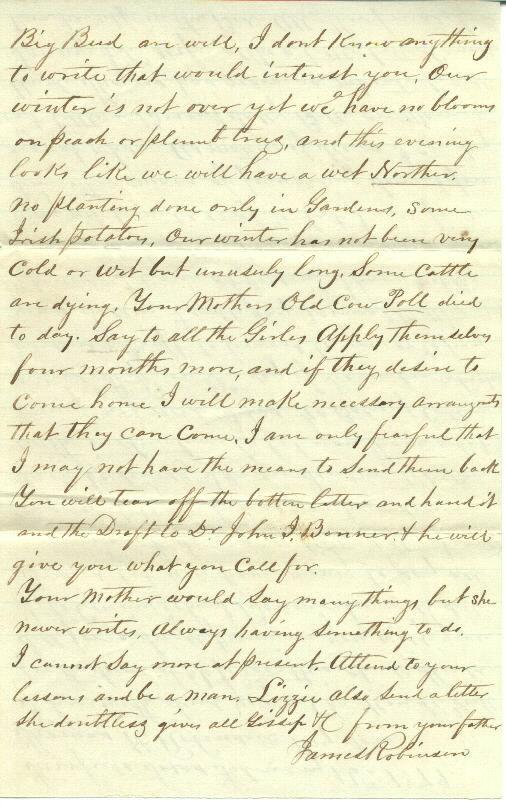 Big Bud are well, I dont Know anything
to write that would interest you. Our
winter is not over yet we have no blooms
on peach or plumb trees, and this evening
looks like we will have a wet Norther.
no planting done only in Gardens, some
Irish potatoes, Our winter has not been very
cold or wet but unusuly long. Some Cattle
are dying. Your Mothers Old Cow Poll died
to day. Say to all the Girles Apply themselves
four months more, and if they desire to
Come home I will make necessary arrangmts
that they can Come. I am only fearful that
I may not have the means to send them back
You will tear off the bottom letter and hand it
and the Draft to Dr. John I. Bonner. & he will
give you what you Call for.
Your Mother would say many things but she
never writes, Always having something to do.
I cannot say more at present. Attend to your
lessons and be a man. Lizzie also send a letter
she doubtless gives all Gossip &C from your father
James Robinson